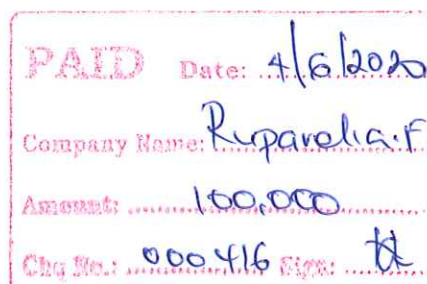 PAID Date: 4/6/2020
Company Name: Ruparelia.F
Amount: 100,000
Chq No.: 000416 Sign: